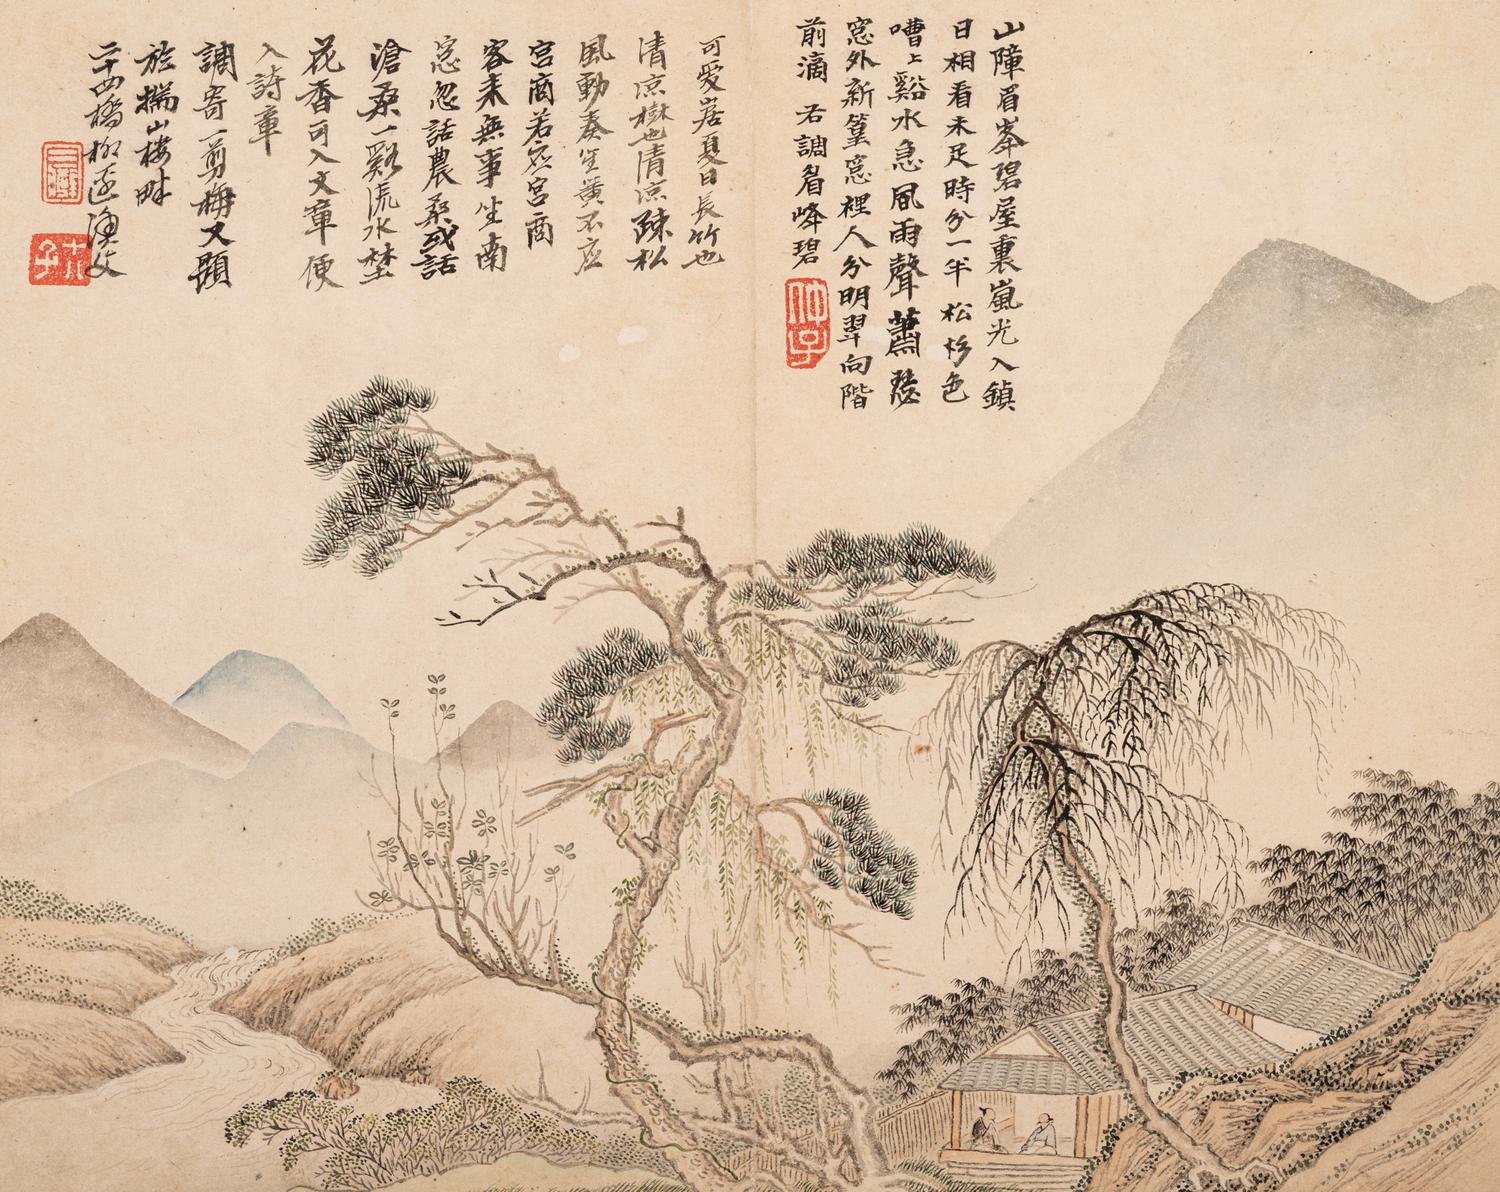 山障眉峯碧屋裏嵐光入鎮
日相看未足時分一半松杉色
嘈〻谿水急風雨聲蕭瑟
窓外新篁窓裡人分明翠向階
前滴 右調眉峰碧
可愛嵓居夏日長竹也
清凉樹也清凉踈松
風動奏笙簧不应
宮商若应宮商
客来無事坐南
窓忽話農桑或話
滄桑一谿流水埜
花香可入文章便
入詩章
調寄一剪梅又題
於揣山樓畔
二十四橋柳邊漁父